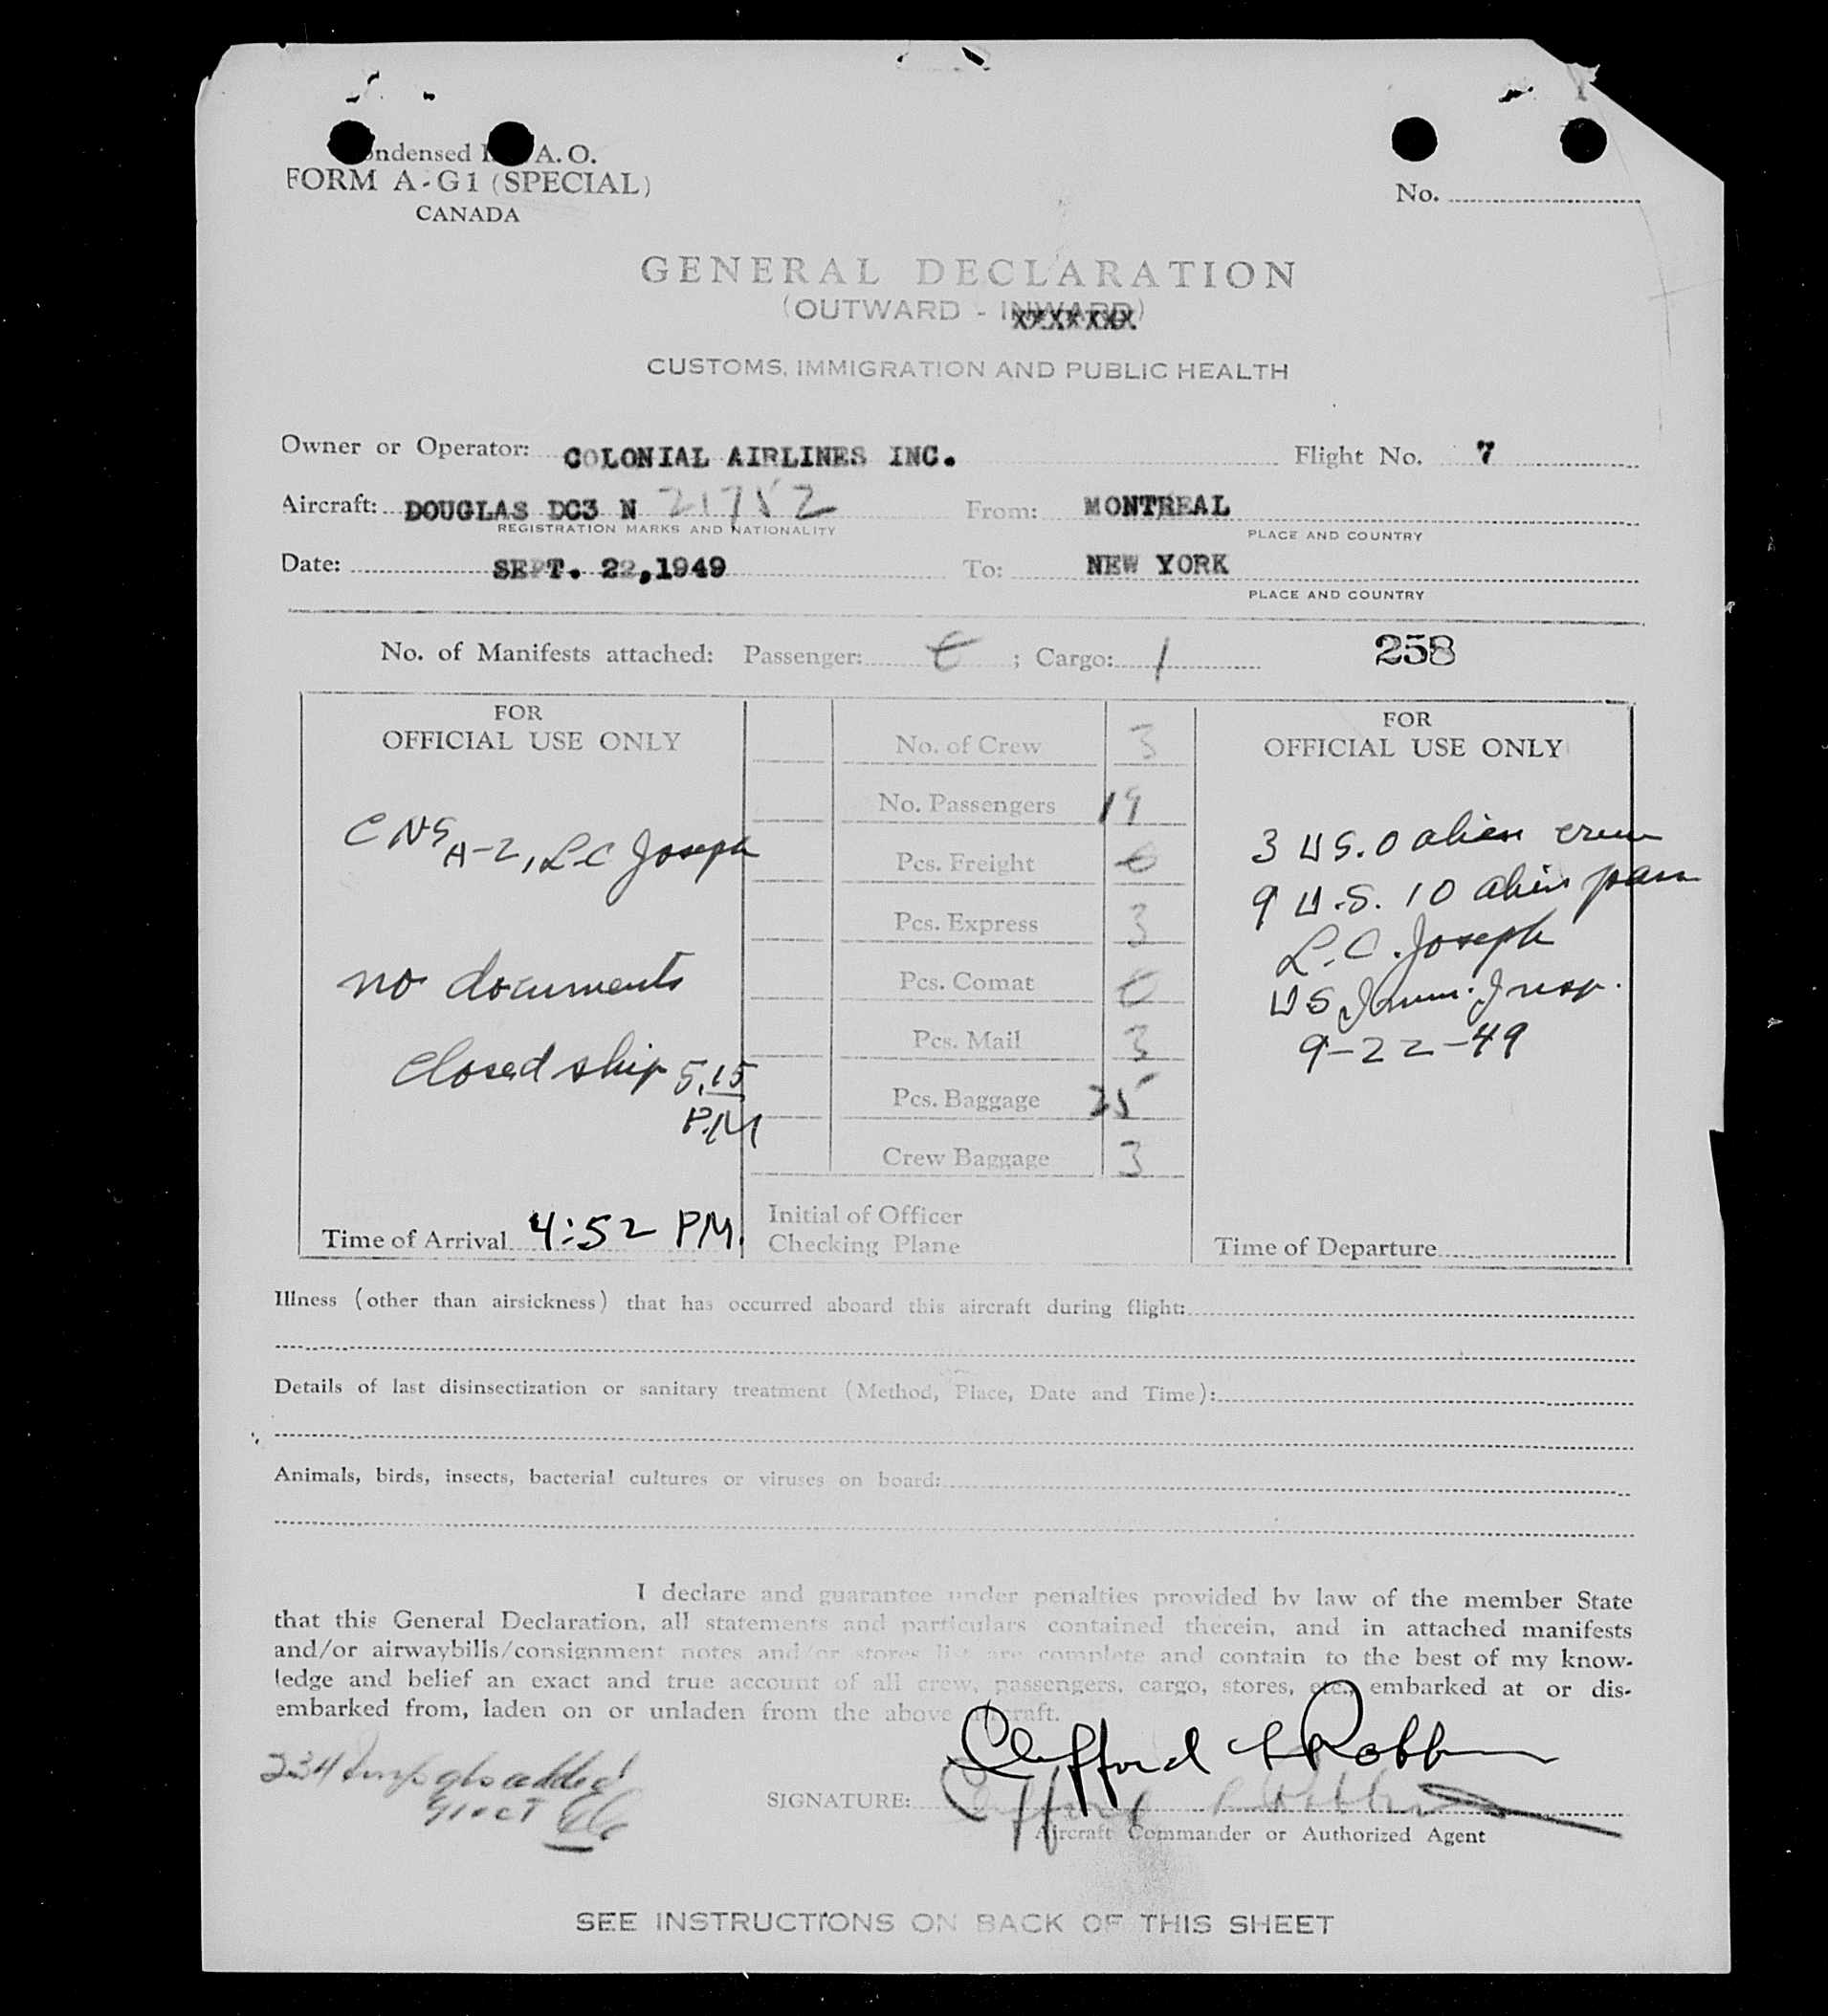 ndensed I A. O.
FORM A-G1 (SPECIAL)
CANADA
No.
GENERAL DECLARATION
(OUTWARD - INWARD)
CUSTOMS, IMMIGRATION AND PUBLIC HEALTH
Owner or Operator: COLONIAL AIRLINES INC. Flight No. 7
Aircraft: DOUGLAS DC3 N 21752 From: MONTREAL
REGISTRATION MARKS AND NATIONALITY PLACE AND COUNTRY
Date: SEPT. 22,1949 To: NEW YORK
PLACE AND COUNTRY
No. of Manifests attached: Passenger: ; Cargo: 1 258
FOR
OFFICIAL USE ONLY
CNS A-2, L C Joseph
no documents
closed ship 5.15
P.M
Time of Arrival 4:52 PM.
No. of Crew 3
No. Passengers 19
Pcs. Freight 0
Pcs. Express 3
Pcs. Comat 0
Pcs. Mail 3
Pcs. Baggage 25
Crew Baggage 3
Initial of Officer
Checking Plane
FOR
OFFICIAL USE ONLY
3 US. 0 alien crew
9 U.S. 10 alien pass
L. C. Joseph
US Imm. Insp.
9-22-49
Time of Departure
Illness (other than airsickness) that has occurred aboard this aircraft during flight:
Details of last disinsectization or sanitary treatment (Method, Place, Date and Time):
Animals, birds, insects, bacterial cultures or viruses on board:
I declare and guarantee under penalties provided by law of the member State
that this General Declaration, all statements and particulars contained therein, and in attached manifests
and/or airwaybills/consignment notes and/or stores list are complete and contain to the best of my know-
ledge and belief an exact and true account of all crew, passengers, cargo, stores, etc., embarked at or dis-
embarked from, laden on or unladen from the above aircraft.
234 gls added
SIGNATURE: Clifford
Aircraft Commander or Authorized Agent
SEE INSTRUCTIONS ON BACK OF THIS SHEET